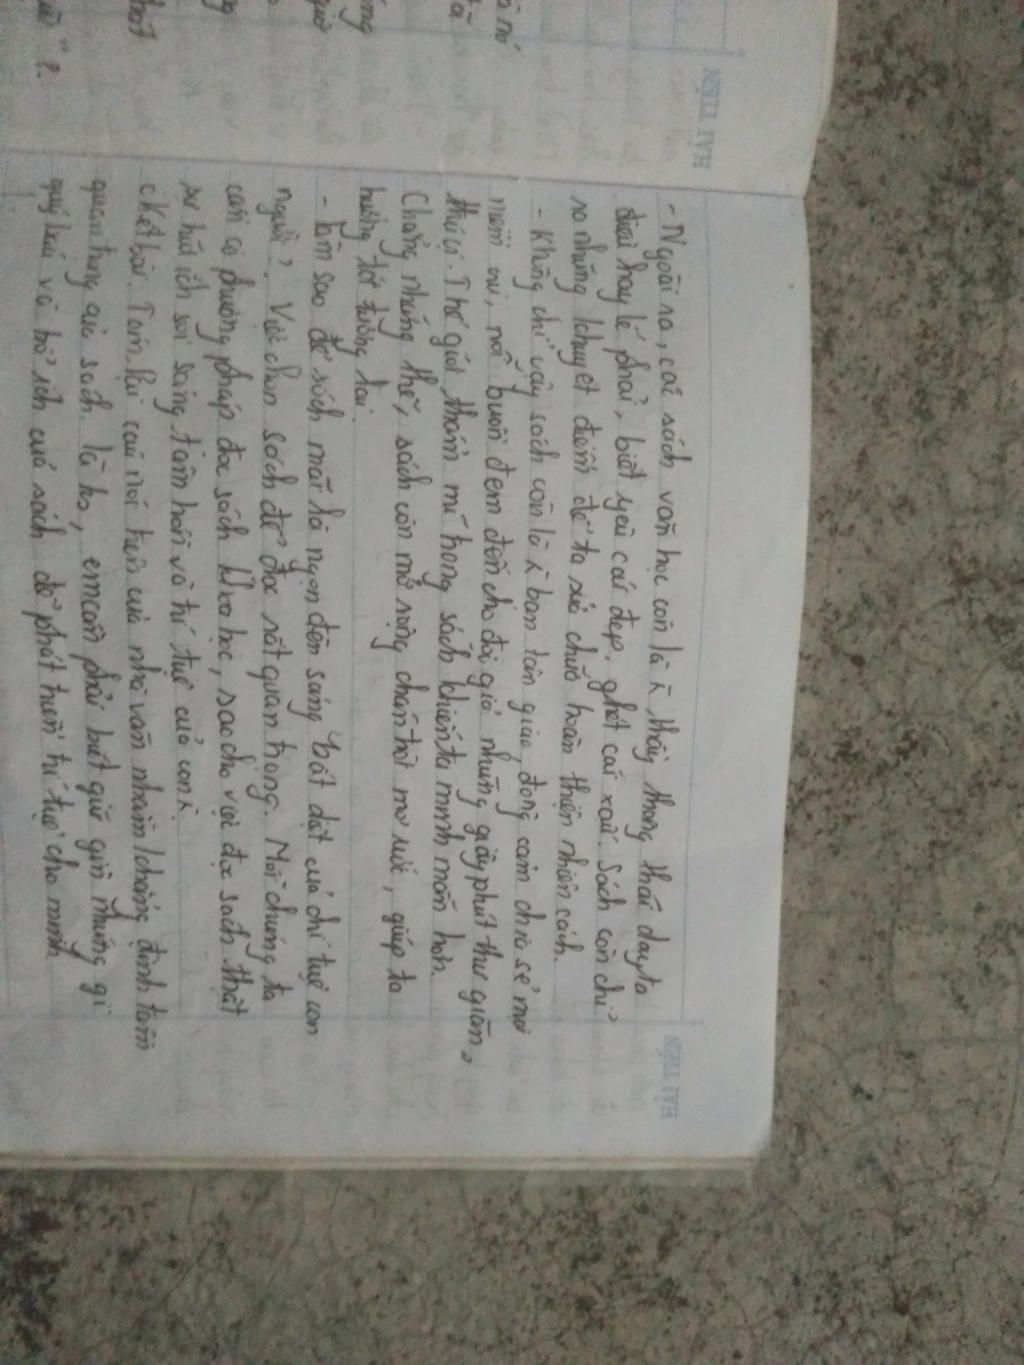 - Ngoài ra, cái sách văn học còn là 1 thầy thong thái dạy ta
điều hay lẽ phải, biết yêu cái đẹp, ghét cái xấu. Sách còn chỉ
ra những khuyết điểm để ta sửa chữa hoàn thiện nhân cách.
- Không chỉ vậy sách còn là 1 bạn tân giao, đồng cảm chia sẻ mọi
niềm vui, nỗi buồn đem đến cho độc giả những giây phút thư giãn,
thú vị. Thế giới thẩm mĩ trong sách khiến ta minh mẫn hơn.
Chẳng những thế, sách còn mở rộng chân trời mơ ước, giúp ta
hướng tới tương lai
- Làm sao để sách mãi là ngọn đèn sáng bất diệt của chí tuệ con
người?. Việc chọn sách để đọc rất quan trọng. Mỗi chúng ta
cần có phương pháp đọc sách khoa học, sao cho việc đọc sách thật
sự hữu ích soi sáng tâm hồn và trí tuệ của con 1
c Kết bài. Tóm lại câu nói trên của nhà văn nhằm khẳng định tầm
quan trọng của sách. Là hs, em cần phải biết giữ gìn những gì
quý báu và bổ ích của sách để phát triển trí tuệ cho mình
HẢI TIẾN
HẢI TIẾN